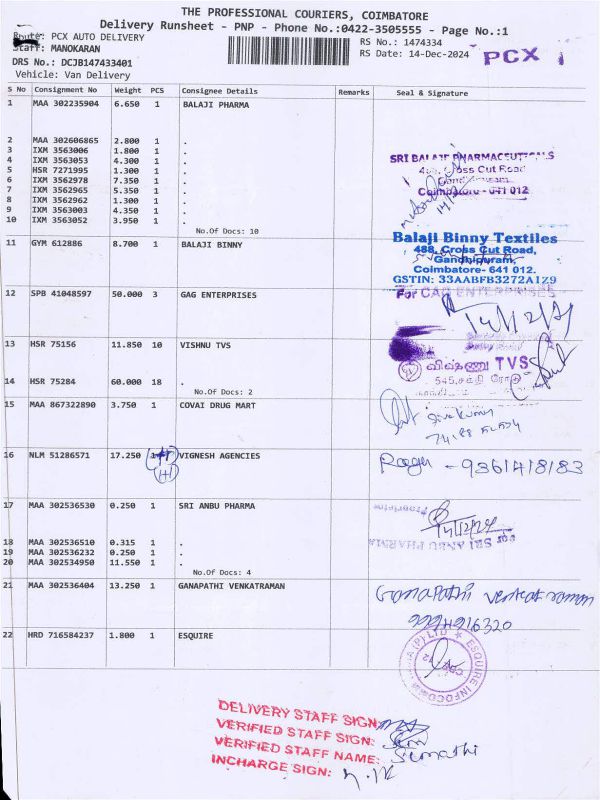 THE PROFESSIONAL COURIERS, COIMBATORE
Delivery Runsheet - PNP - Phone No.:0422-3505555 - Page No.:1
Route: PCX AUTO DELIVERY
RS No.: 1474334
Staff: MANOKARAN
RS Date: 14-Dec-2024
PCX
DRS No.: DCJB147433401
Vehicle: Van Delivery
S No Consignment No Weight PCS Consignee Details Remarks Seal & Signature
1 MAA 302235904 6.650 1 BALAJI PHARMA
2 MAA 302606865 2.800 1 .
3 IXM 3563006 1.800 1 .
4 IXM 3563053 4.300 1 .
5 HSR 7271995 1.300 1 .
6 IXM 3562978 7.350 1 .
7 IXM 3562965 5.350 1 .
8 IXM 3562962 1.300 1 .
9 IXM 3563003 4.350 1 .
10 IXM 3563052 3.950 1 .
No.Of Docs: 10
SRI BALAJI PHARMACEUTICALS
Cross Cut Road
Coimbatore - 641 012
11 GYM 612886 8.700 1 BALAJI BINNY
Balaji Binny Textiles
488, Cross Cut Road,
Gandhipuram,
Coimbatore- 641 012.
GSTIN: 33AABFB3272A1Z9
12 SPB 41048597 50.000 3 GAG ENTERPRISES
For GAG ENTERPRISES
14/12/24
13 HSR 75156 11.850 10 VISHNU TVS
14 HSR 75284 60.000 18 .
No.Of Docs: 2
விஷ்ணு TVS
545, சக்தி ரோடு
15 MAA 867322890 3.750 1 COVAI DRUG MART
16 NLM 51286571 17.250 1+1 VIGNESH AGENCIES
(1+1)
9361418183
17 MAA 302536530 0.250 1 SRI ANBU PHARMA
18 MAA 302536510 0.315 1 .
19 MAA 302536232 0.250 1 .
20 MAA 302534950 11.550 1 .
No.Of Docs: 4
Proprietor
14/12/24
For SRI ANBU PHARMA
21 MAA 302536404 13.250 1 GANAPATHI VENKATRAMAN
Ganapathi Venkatraman
22 HRD 716584237 1.800 1 ESQUIRE
DELIVERY STAFF SIGN:
VERIFIED STAFF SIGN:
VERIFIED STAFF NAME: Sumathi
INCHARGE SIGN: